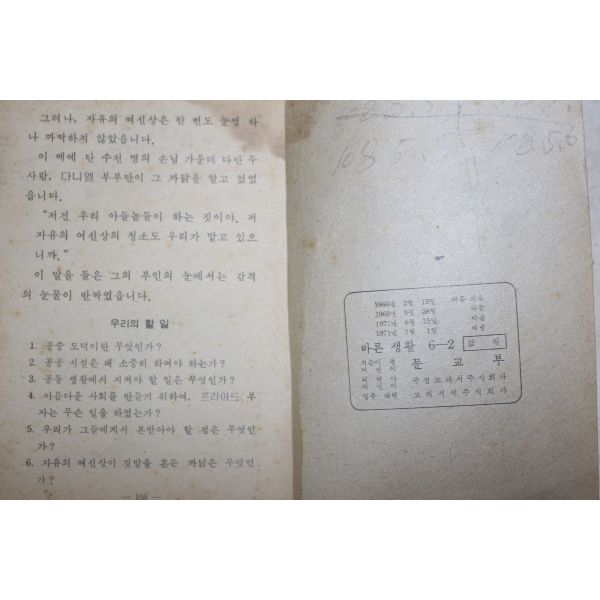 그러나, 자유의 여신상은 한 번도 눈썹 하
나 까딱하지 않았읍니다.
이 배에 탄 수천 명의 손님 가운데 다만 두
사람, 다니엘 부부만이 그 까닭을 알고 있었
읍니다.
“저건 우리 아들놈들이 하는 짓이야. 저
자유의 여신상의 청소도 우리가 맡고 있으
니까.”
이 말을 들은 그의 부인의 눈에서는 감격
의 눈물이 반짝였읍니다.
우리의 할 일
1. 공중 도덕이란 무엇인가?
2. 공공 시설은 왜 소중히 하여야 하는가?
3. 공동 생활에서 지켜야 할 일은 무엇인가?
4. 아름다운 사회를 만들기 위하여, 프라이드 부
자는 무슨 일을 하였는가?
5. 우리가 그들에게서 본받아야 할 점은 무엇인
가?
6. 자유의 여신상이 깃발을 흔든 까닭은 무엇인
가?
— 156 —
108.5, 108.5,8
1966년 2월 15일
28일
1971년 6월 15일
1971년 7월 1일
바른 생활 6—2
문교부
국정교과서주식회사
고려서적주식회사